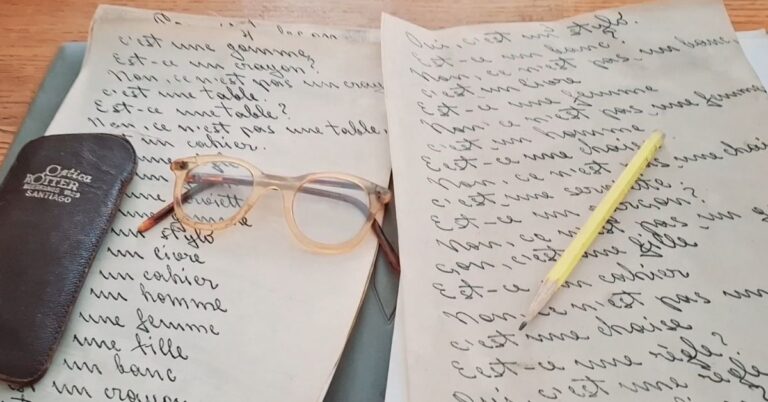 Optica
RÖTTER
SANTIAGO
c'est une gomme,
Est-ce un crayon?
Non, ce n'est pas un cray
c'est une table.
Est-ce une table?
Non, ce n'est pas une table.
un cahier.
un stylo
un livre
un cahier
un homme
une femme
une fille
un banc
un crayon
Oui, c'est un stylo.
Est-ce un banc?
Non, ce n'est pas un banc
C'est un livre
Est-ce une femme
Non, ce n'est pas une femme
C'est un homme
Est-ce une chaise
Non ce n'est pas une chaise
C'est une serviette
Est-ce un garçon?
Non, ce n'est pas un g
c'est une fille
Est-ce un cahier
Non ce n'est pas un
C'est une chaise
Est-ce une règle?
Oui, c'est une règle
Est-ce